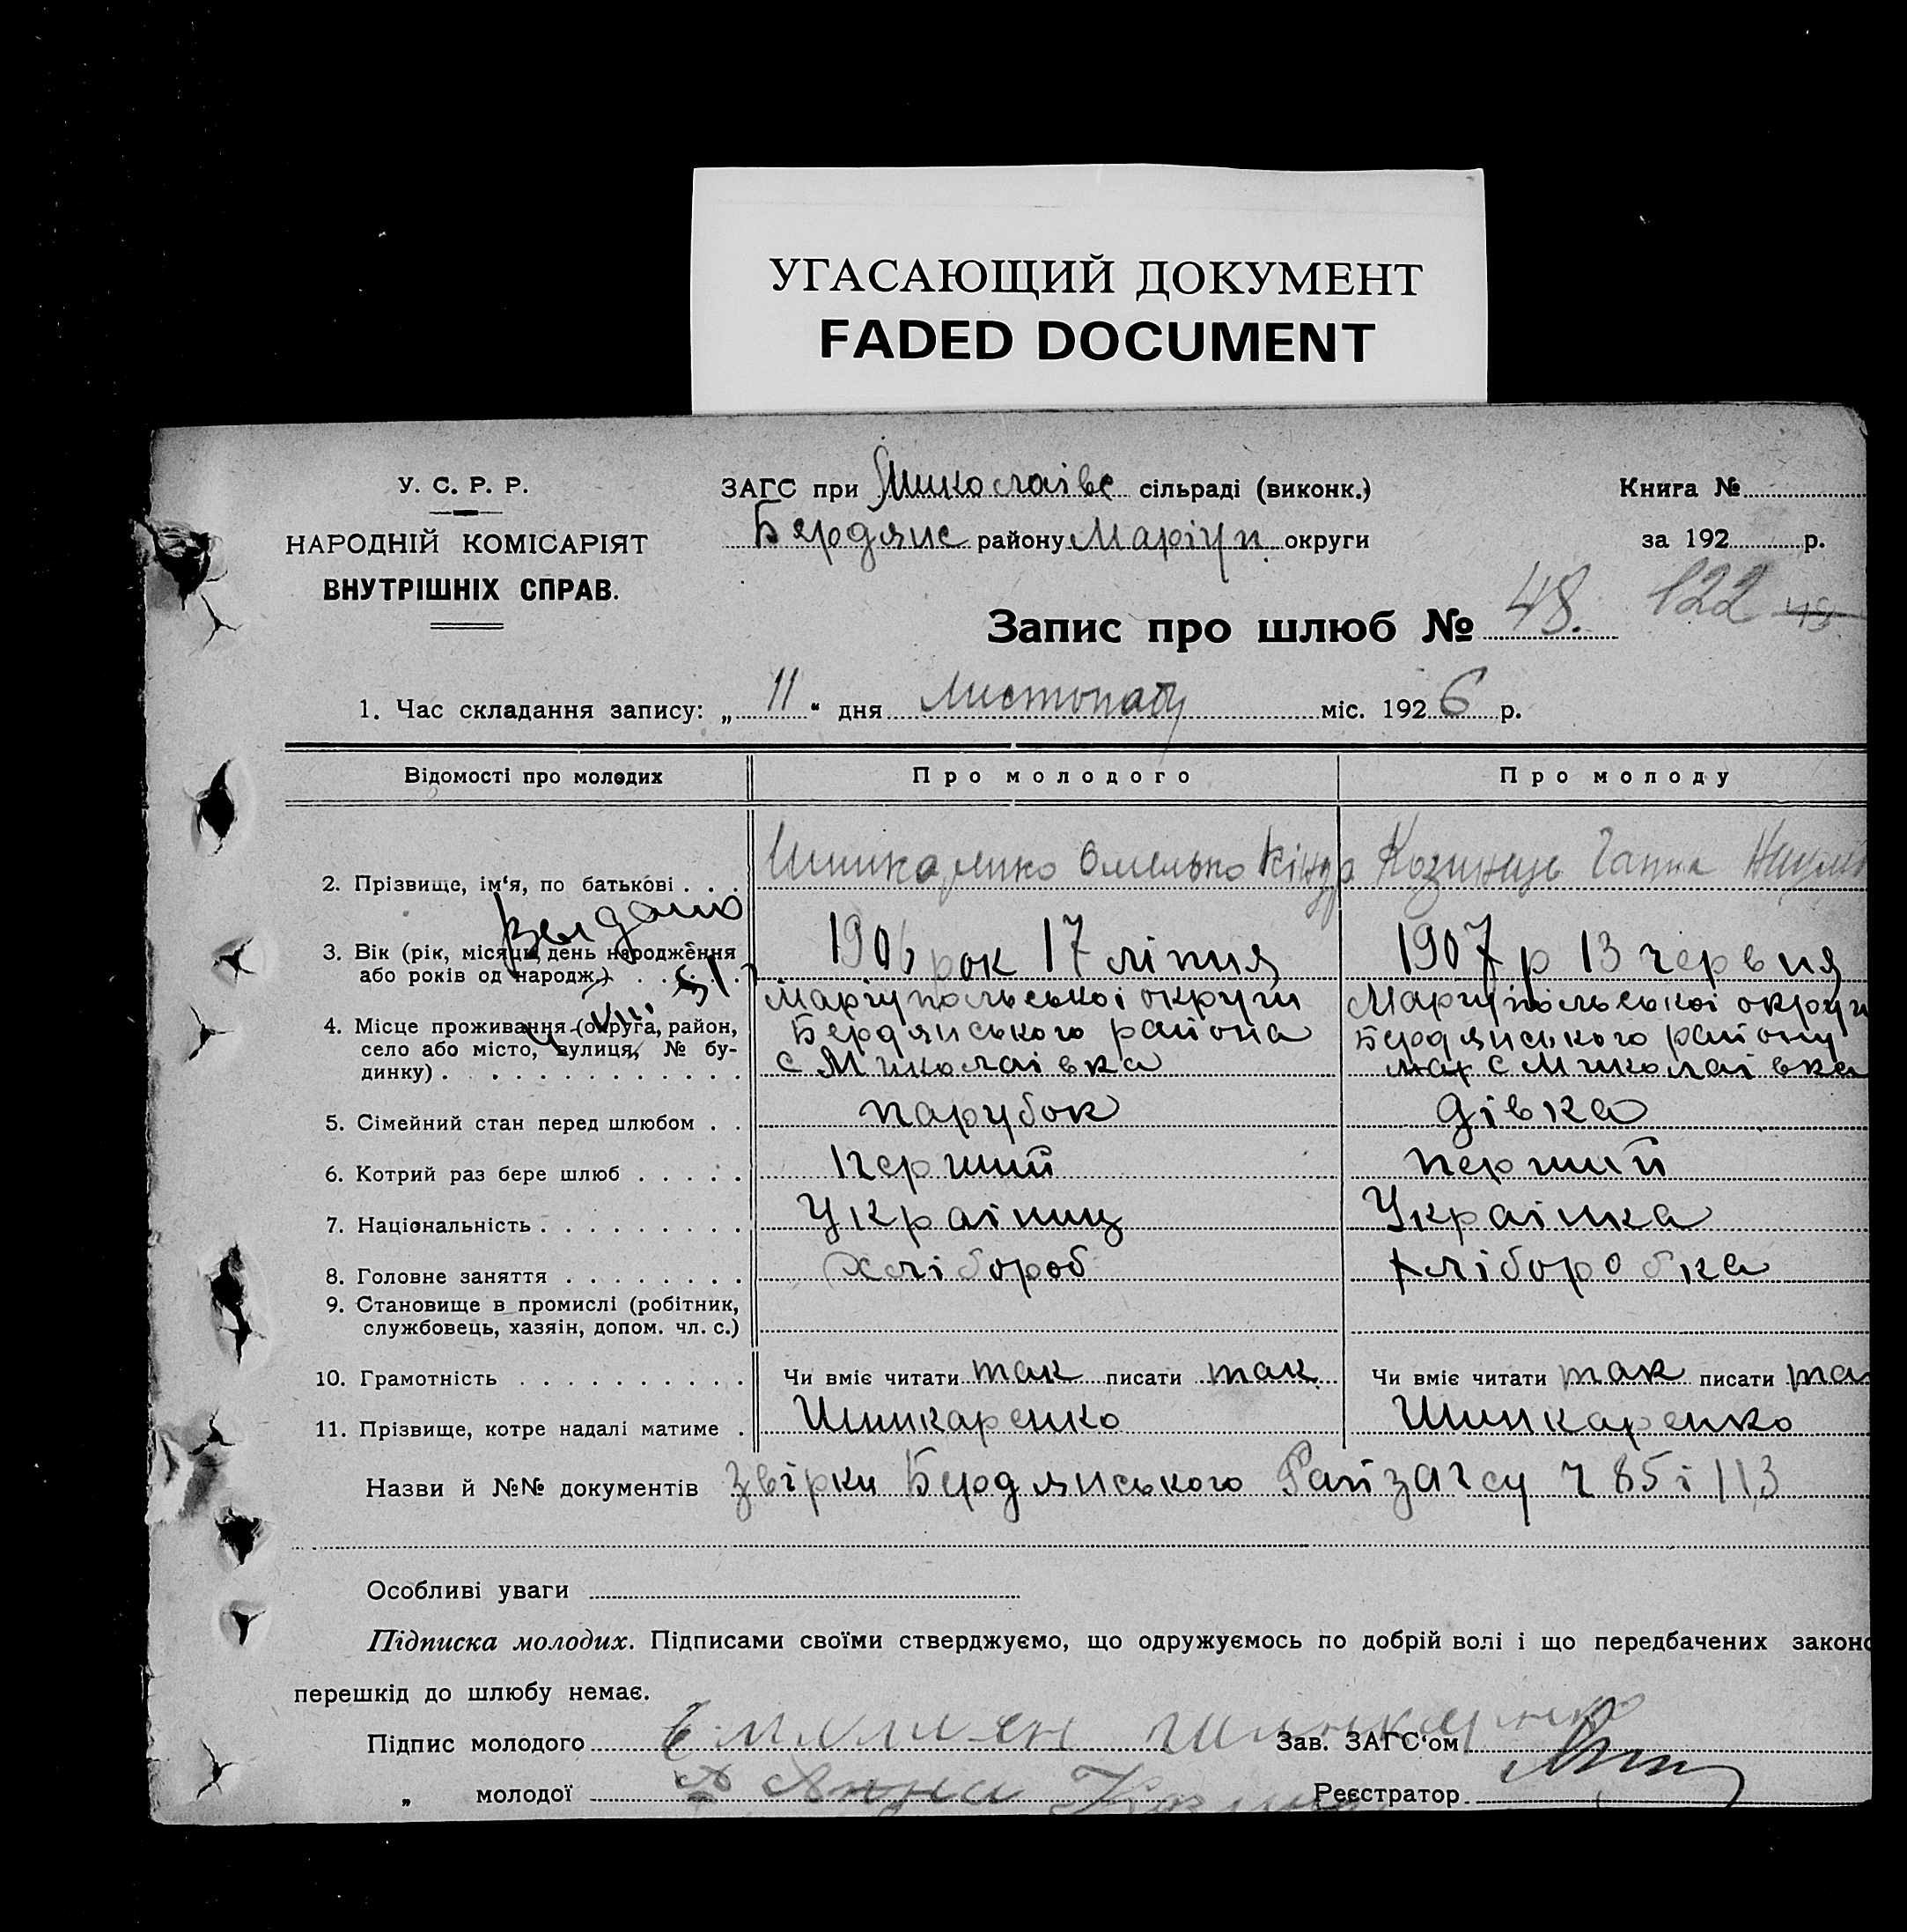 УГАСАЮЩИЙ ДОКУМЕНТ
FADED DOCUMENT
У. С. Р. Р.
НАРОДНІЙ КОМІСАРІЯТ
ВНУТРІШНІХ СПРАВ.
ЗАГС при Миколаівс сільраді (виконк.)
Бердянс району Маріуп. округи
Книга №
за 192 р.
Запис про шлюб № 48. 122
1. Час складання запису: „ 11 “ дня Листопаду міс. 192 6 р.
Відомості про молодих Про молодого Про молоду
2. Прізвище, ім‘я, по батькові . . . Омелько Кіндр Козинець Ганна
3. Вік (рік, місяць, день народження 1906 рок 17 ліпня 1907 р 13 червня
або років од народж.) . . . . .
4. Місце проживання (округа, район, Маріупольськоі округи Маріупольськоі округи
село або місто, вулиця, № бу- Бердянського района Бердянського району
динку) . . . . . . . . . . . . . с Миколаівка с Миколаівка
5. Сімейний стан перед шлюбом . . парубок дівка
6. Котрий раз бере шлюб . . . . . перший перший
7. Національність . . . . . . . . . Украіниц Украінка
8. Головне заняття . . . . . . . . хлібороб хліборобка
9. Становище в промислі (робітник,
службовець, хазяін, допом. чл. с.)
10. Грамотність . . . . . . . . . . Чи вміє читати так писати так Чи вміє читати так писати так
11. Прізвище, котре надалі матиме . Шинкаренко Шинкаренко
Назви й №№ документів Звірки Бердянського Райзагсу ч 85 і 113
Особливі уваги
Підписка молодих. Підписами своїми стверджуємо, що одружуємось по добрій волі і що передбачених законо
перешкід до шлюбу немає.
Підпис молодого Зав. ЗАГС‘ом
„ молодої Анна Реєстратор